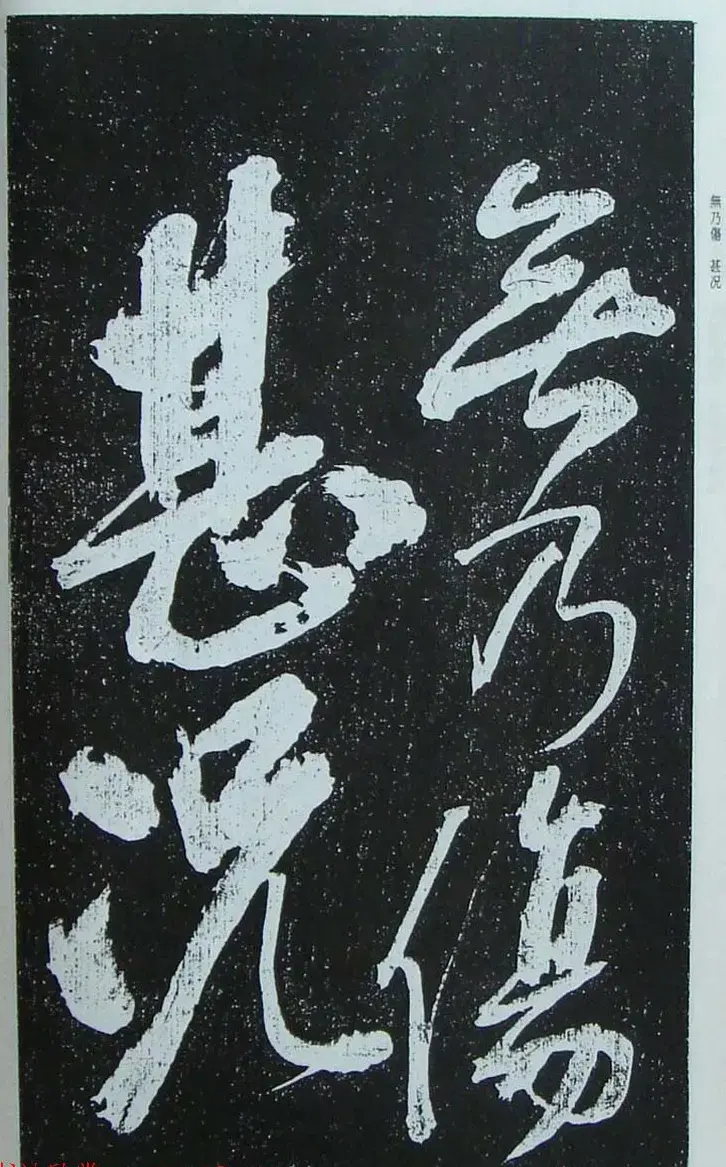 無乃傷
甚況
無乃傷 甚况